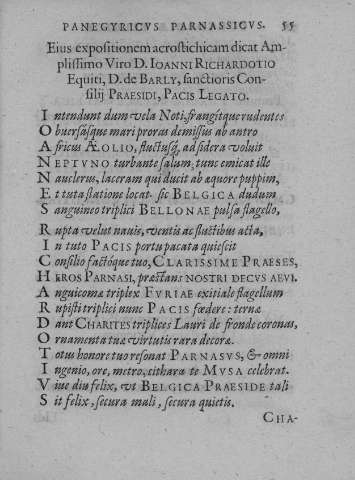 PANEGYRICVS PARNASSICVS. 55
Eius expositionem acrostichicam dicat Am-
plissimo Viro D. IOANNI RICHARDOTIO
Equiti, D. de BARLY, sanctioris Con-
silij PRAESIDI, PACIS LEGATO.
Intendunt dum vela Noti, frangitque rudentes
Obuersasque mari proras demissus ab antro
Africus ÆOLIO, fluctusq, ad sidera voluit
NEPTVNO turbante salum; tunc emicat ille
Nauclerus, laceram qui ducit ab æquore puppim,
Et tuta statione locat. sic BELGICA dudum
Sanguineo triplici BELLONAE pulsa flagello,
Rupta velut nauis, ventis ac fluctibus acta,
In tuto PACIS portu pacata quiescit
Consilio factóque tuo, CLARISSIME PRAESES,
HEROS PARNASI, præstans NOSTRI DECVS AEVI.
Anguicomæ triplex FVRIAE exitiale flagellum
Rupisti triplici nunc PACIS fœdere: ternæ
Dant CHARITES triplices Lauri de fronde coronas,
Ornamenta tuæ virtutis rara decoræ.
Totus honore tuo resonat PARNASVS, & omni
Ingenio, ore, metro, cithara te MVSA celebrat.
Viue diu felix, vt BELGICA PRAESIDE tali
Sit felix, secura mali, secura quietis.
CHA-